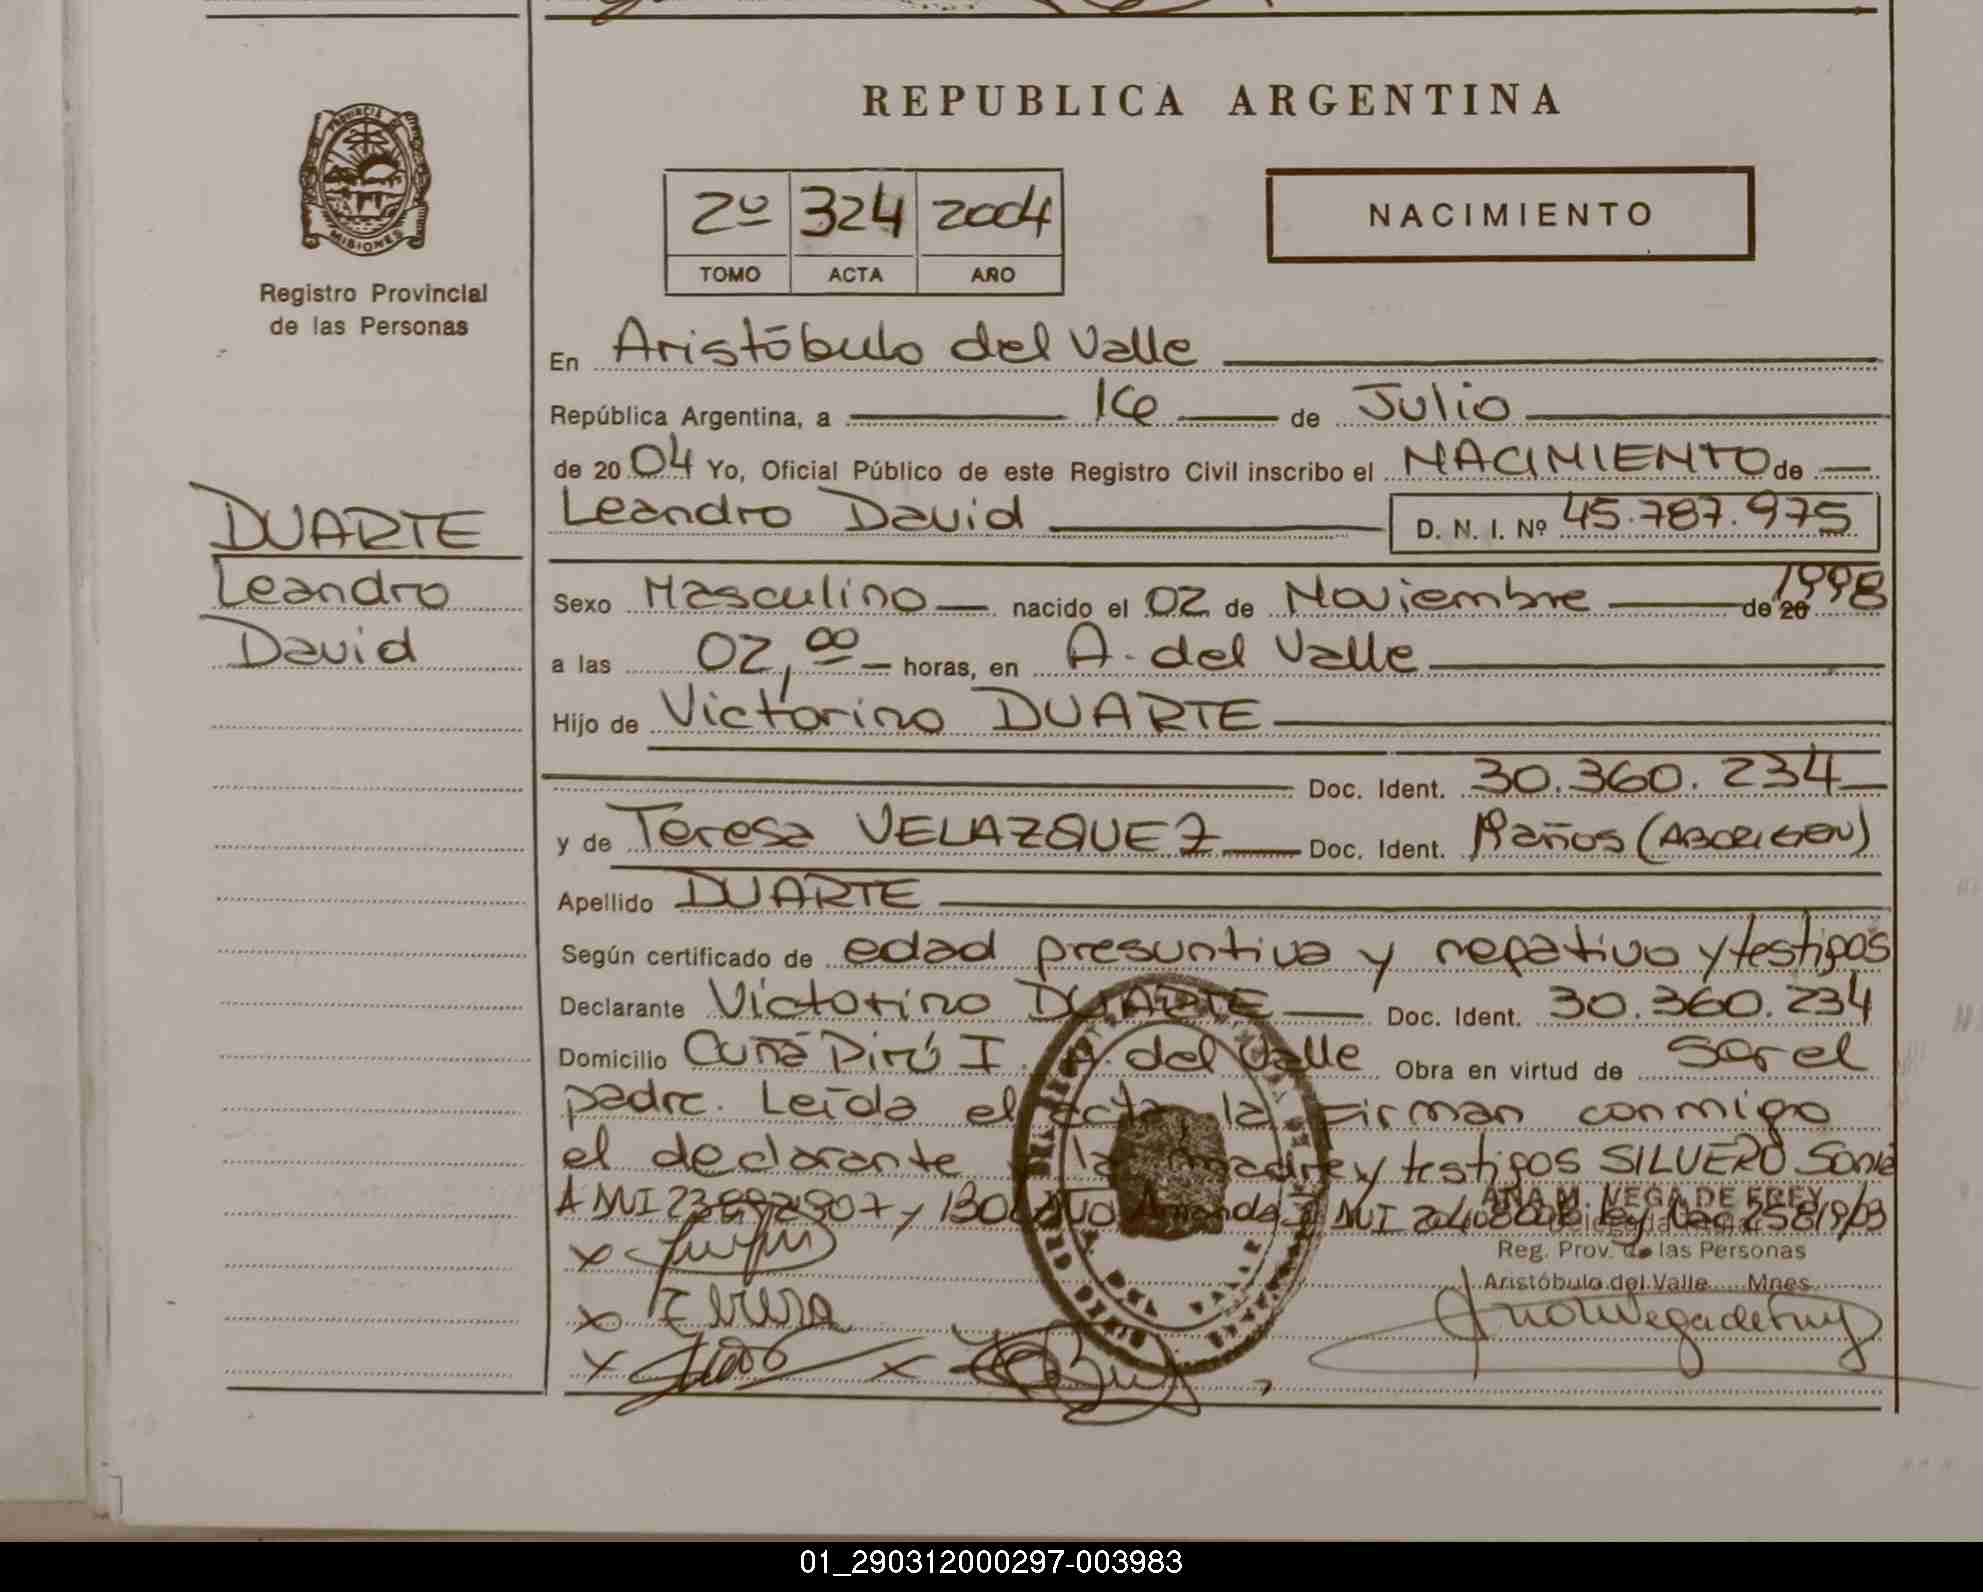 REPUBLICA ARGENTINA
PROVINCIA DE
MISIONES
Registro Provincial
de las Personas
2º 324 2004
TOMO ACTA AÑO
NACIMIENTO
En Aristóbulo del Valle
República Argentina, a 16 de Julio
de 2004 Yo, Oficial Público de este Registro Civil inscribo el NACIMIENTO de
Leandro David D. N. I. Nº 45.787.975
DUARTE
Leandro
David
Sexo Masculino nacido el 02 de Noviembre de 20 1998
a las 02,00 horas, en A. del Valle
Hijo de Victorino DUARTE
Doc. Ident. 30.360.234
y de Teresa VELAZQUEZ Doc. Ident. (ABORIGEN)
Apellido DUARTE
Según certificado de edad presuntiva y negativo y testigos
Declarante Victorino DUARTE Doc. Ident. 30.360.234
Domicilio Cuñá Pirú I A. del Valle Obra en virtud de ser el
padre. Leída el acta la firman conmigo
el declarante la madre y testigos SILVERO Sonia
A DNI y Amanda DNI Ley Nac 25819/03
ANA M. VEGA DE FREY
Reg. Prov. de las Personas
Aristóbulo del Valle Mnes
01_290312000297-003983